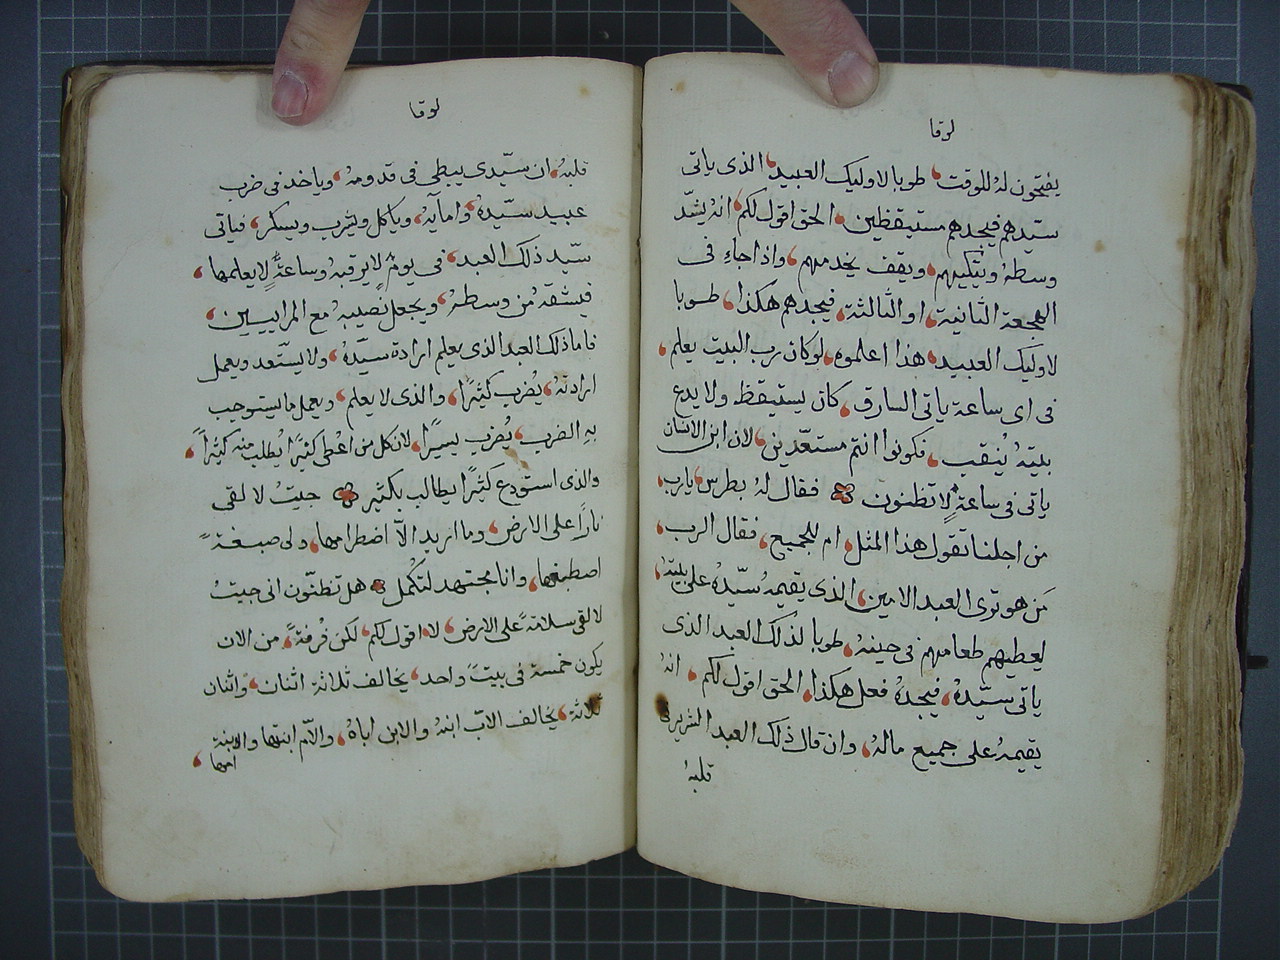 لوقا
يفتحون لهُ للوقت، طوبا لاوليك العبيد، الذى ياتى
سيّدهم فيجدهم مستيقظين، الحق اقول لكم، انهُ يشدّ
وسطهُ ويتكيهم، ويقف يخدمهم، واذا جاءِ فى
الهجعة الثانية، او الثالثة، فيجدهم هكذا، طوبا
لاوليك العبيد، هذا اعلموه، لوكان رب البيت يعلم،
فى اى ساعة ياتى السارق، كان يستيقظ ولا يدع
بيتهُ يُنقب، فكونوا انتم مستعدّين، لان ابن الانسان
ياتى فى ساعةٍ لا تظنون فقال لهُ بطرس، يارب،
من اجلنا تقول هذا المثل، ام للجميع، فقال الرب،
مَن هو ترى العبد الامين، الذى يقيمهُ سيّدهُ على بيته،
ليعطيهم طعامهم فى حينهِ، طوبا لذلك العبد الذى
ياتى سيّدهُ، فيجدهُ فعل هكذا، الحق اقول لكم، انهُ
يقيمهُ على جميع مالهُ، وان قال ذلك العبد الشرير فى
قلبهُ
لوقا
قلبهُ، ان سيّدى يبطى فى قدومهُ، وياخد فى ضرب
عبيد سيّدهُ، وامآيهُ، وياكل ويشرب ويسكر، فياتى
سيّد ذلك العبد، فى يومٍ لا يرقبهُ وساعةٍ لا يعلمها،
فيشقهُ من وسطهُ، ويجعل نصيبهُ مع المراييين،
فاما ذلك العبد الذى يعلم ارادة سيّدهُ، ولا يستعد ويعمل
ارادتهُ، يُضرب كثيرًا، والذى لا يعلم، ويعمل ما يستوجب
بهِ الضرب، يُضرب يسيرًا، لان كل من اعُطى كثيرًا يُطلب منه كثيراً،
والذى استودع كثيرًا يطالب بكثير جيتُ لالقى
نارًا على الارض، وما اريد الاّ اضطرامها، ولى صبغةً
اصطبغها، وانا مجتهد لتكمل هل تظنّون انى جيتُ
لالقى سلامةً على الارض، لا، اقول لكم، لكن فُرقةً، من الان
يكون خمسة فى بيتً واحد، يخالف ثلاثة اثنان، واثنان
ثلاثة، يخالف الابّ ابنهُ والابن اباهُ، والامّ ابنتها والابنة
امها،